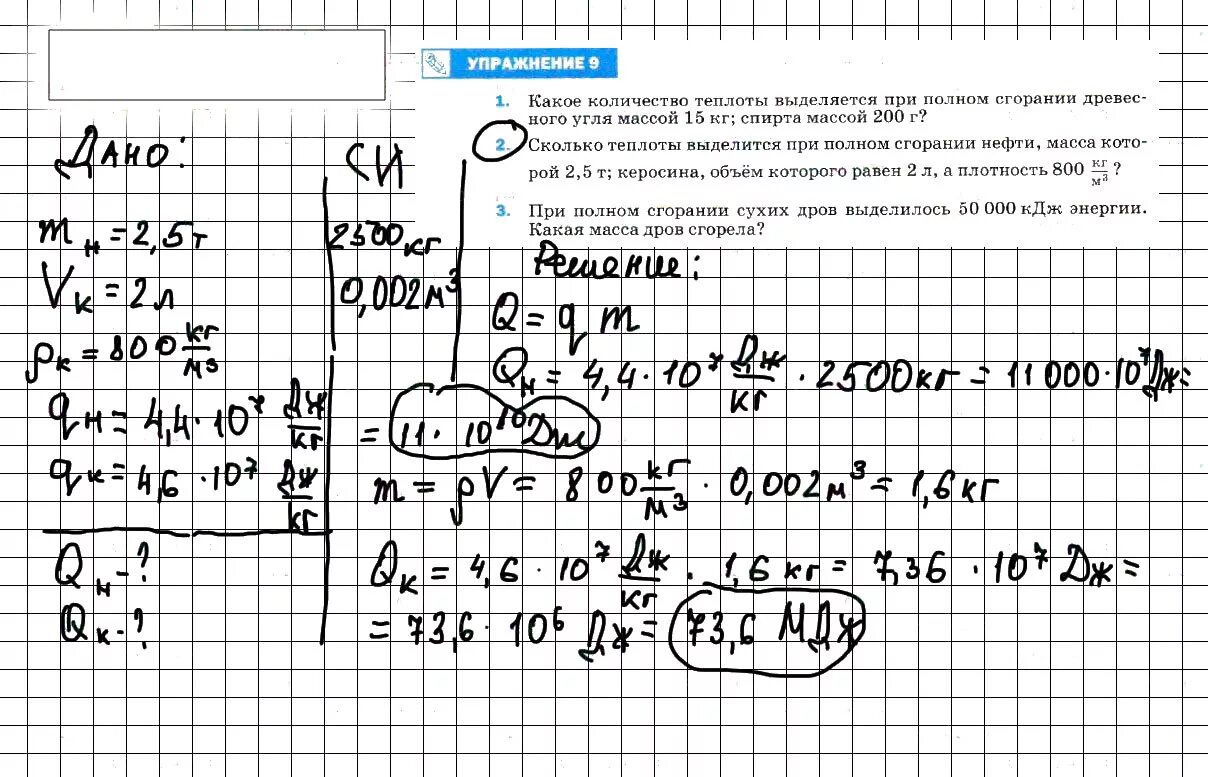 УПРАЖНЕНИЕ 9
1. Какое количество теплоты выделяется при полном сгорании древес-
ного угля массой 15 кг; спирта массой 200 г?
2. Сколько теплоты выделится при полном сгорании нефти, масса кото-
рой 2,5 т; керосина, объём которого равен 2 л, а плотность 800 кг/м³ ?
3. При полном сгорании сухих дров выделилось 50 000 кДж энергии.
Какая масса дров сгорела?
Дано:
mн = 2,5т
Vк = 2л
ρк = 800 кг/м³
qн = 4,4 · 10⁷ Дж/кг
qк = 4,6 · 10⁷ Дж/кг
Qн - ?
Qк - ?
СИ
2500кг
0,002м³
Решение:
Q = qm
Qн = 4,4 · 10⁷ Дж/кг · 2500кг = 11 000 · 10⁷ Дж =
= 11 · 10¹⁰ Дж
m = ρV = 800 кг/м³ · 0,002м³ = 1,6кг
Qк = 4,6 · 10⁷ Дж/кг · 1,6 кг = 7,36 · 10⁷ Дж =
= 73,6 · 10⁶ Дж = 73,6 МДж